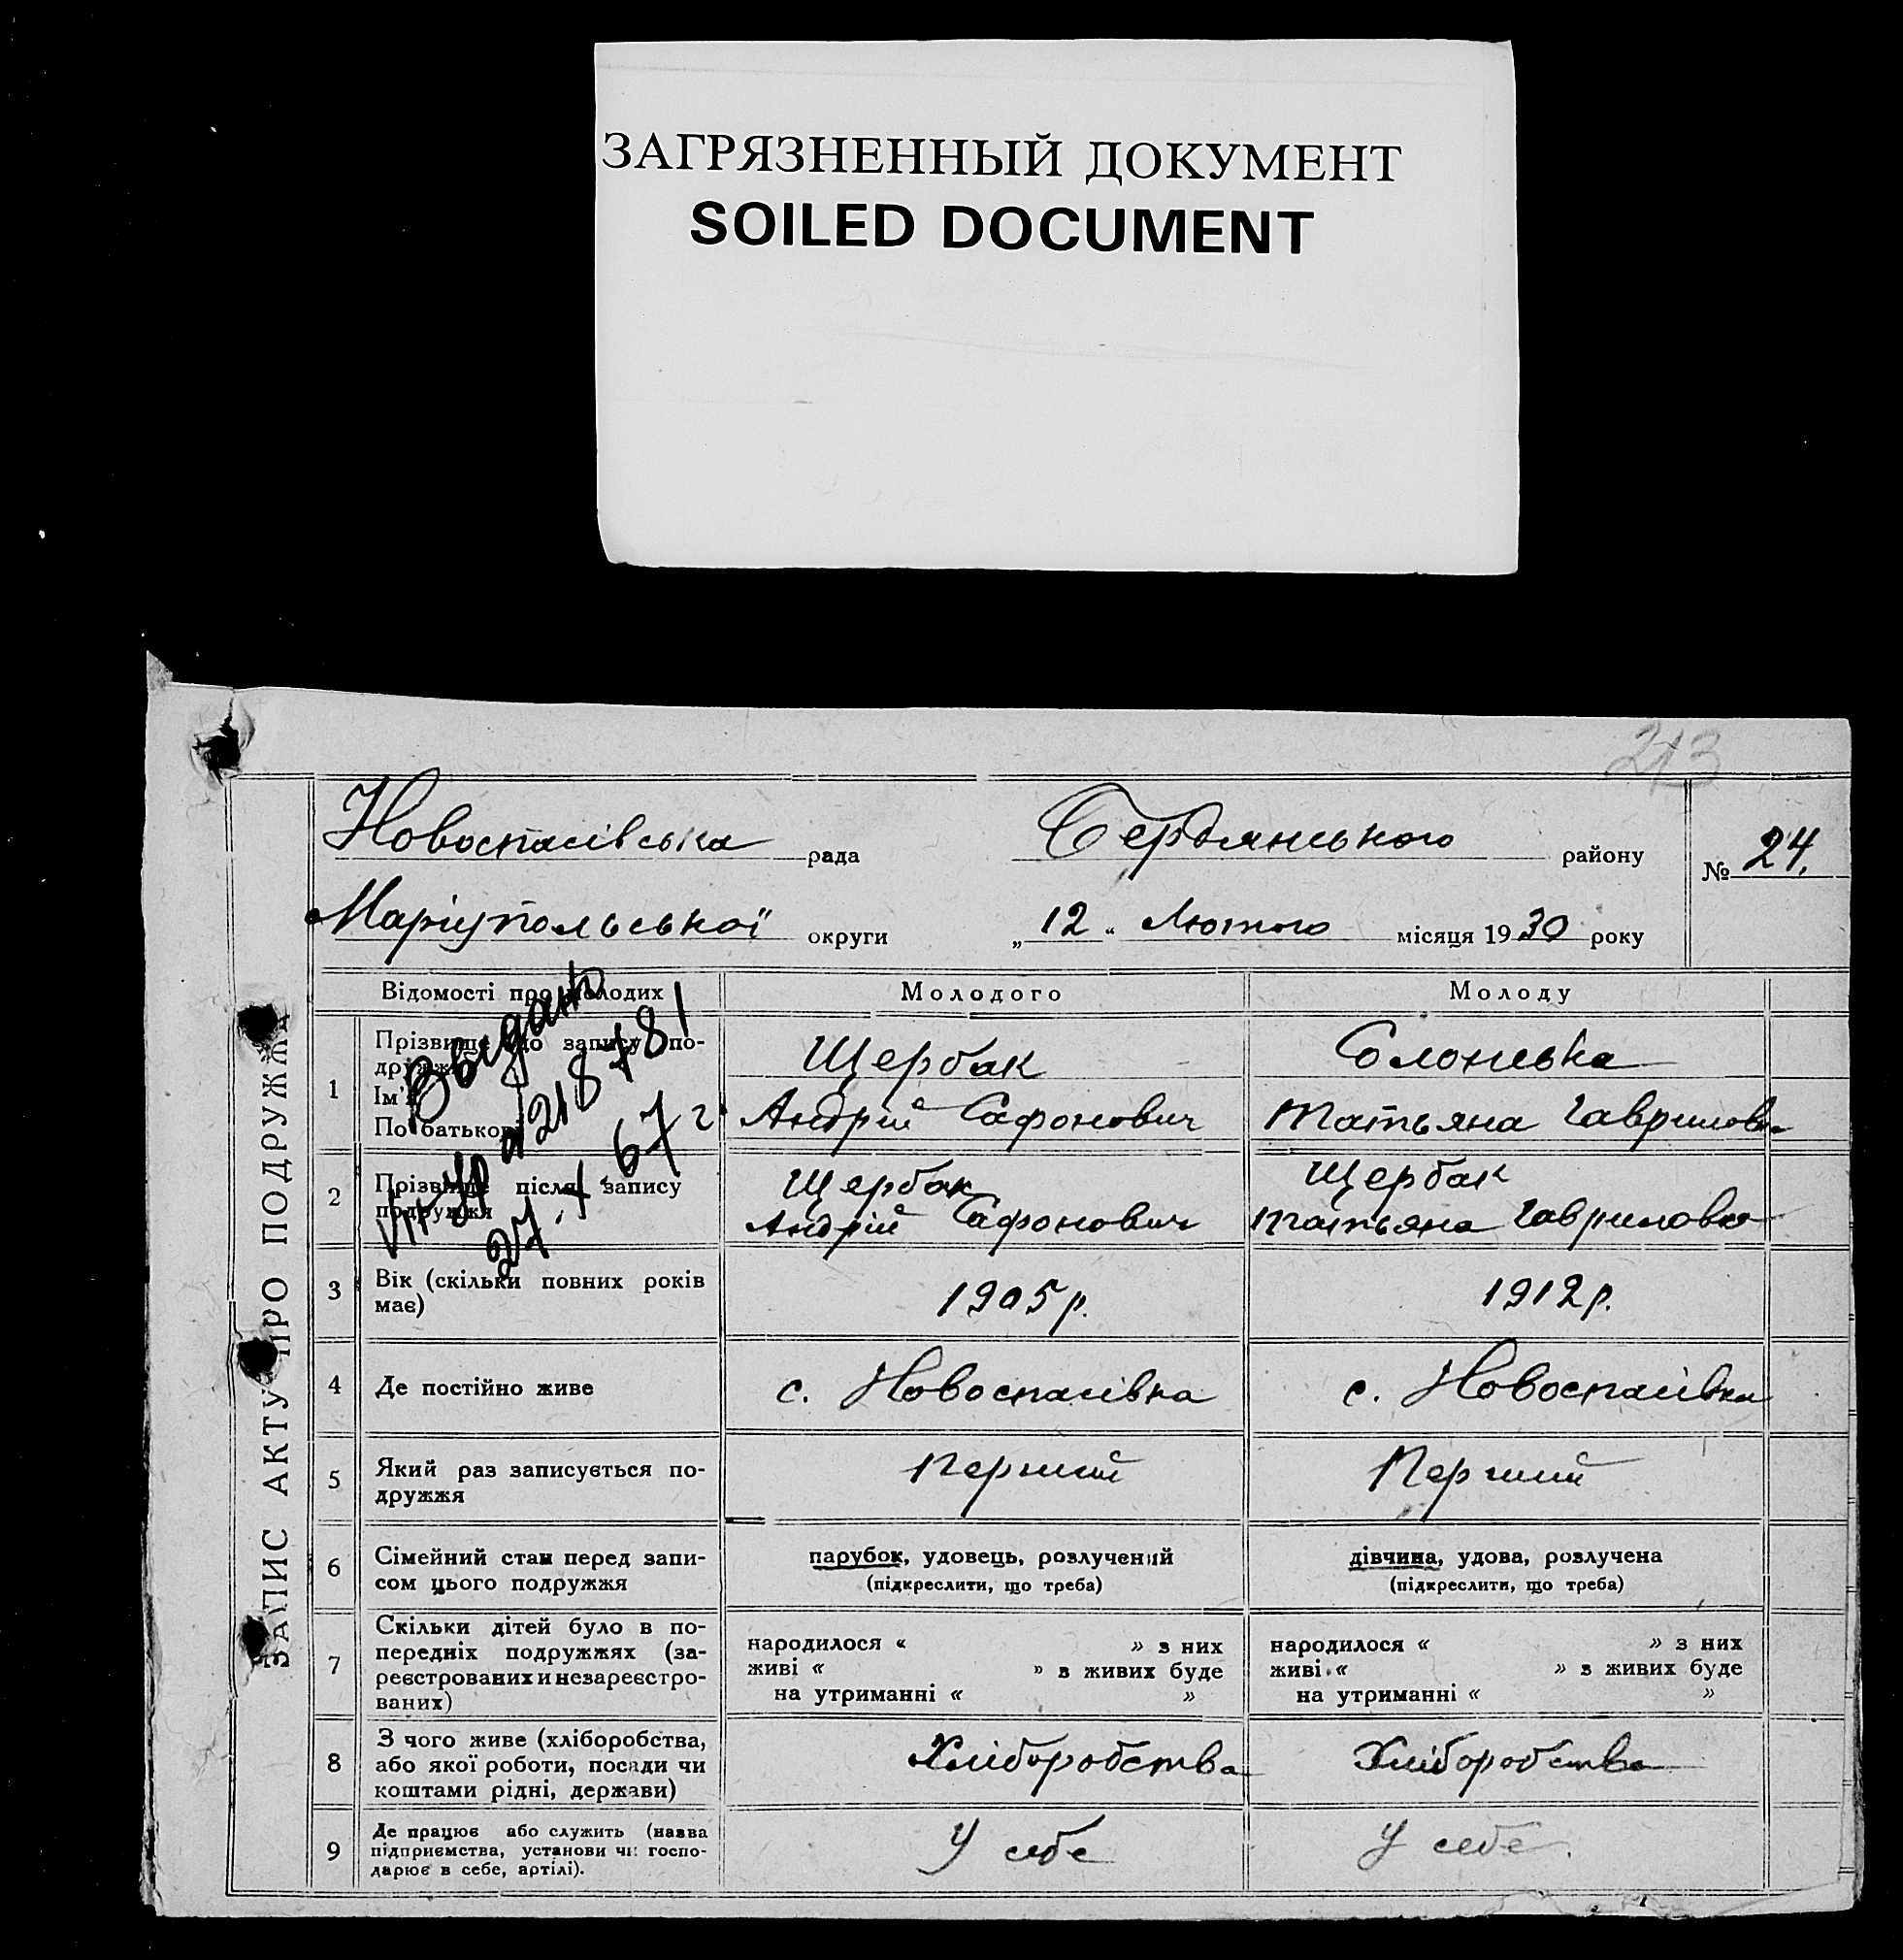 ЗАГРЯЗНЕННЫЙ ДОКУМЕНТ
SOILED DOCUMENT
213
ЗАПИС АКТУ ПРО ПОДРУЖЖЯ
Новоспасівська рада Бердянського району № 24.
Маріупольської округи „12“ Лютого місяця 1930 року
Відомості про молодих Молодого Молоду
1 Прізвище до запису по-
дружжя
Ім'я
По батькові
Щербак
Андрій Сафонович
Солонська
Татьяна Гаврилов
Выдано
218781
27. 67 г
2 Прізвище після запису
подружжя
Щербак
Андрій Сафонович
Щербак
Татьяна Гавриловна
3 Вік (скільки повних років
має)
1905 р.
1912 р.
4 Де постійно живе
с. Новоспасівка
с. Новоспасівка
5 Який раз записується по-
дружжя
Перший
Перший
6 Сімейний стан перед запи-
сом цього подружжя
парубок, удовець, розлучений
(підкреслити, що треба)
дівчина, удова, розлучена
(підкреслити, що треба)
7 Скільки дітей було в по-
передніх подружжях (за-
реєстрованих и незареєстро-
ваних)
народилося « » з них
живі « » з живих буде
на утриманні « »
народилося « » з них
живі « » з живих буде
на утриманні « »
8 З чого живе (хліборобства,
або якої роботи, посади чи
коштами рідні, держави)
Хліборобства
Хліборобства
9 Де працює або служить (назва
підприємства, установи чи госпо-
дарює в себе, артілі).
У себе
У себе.